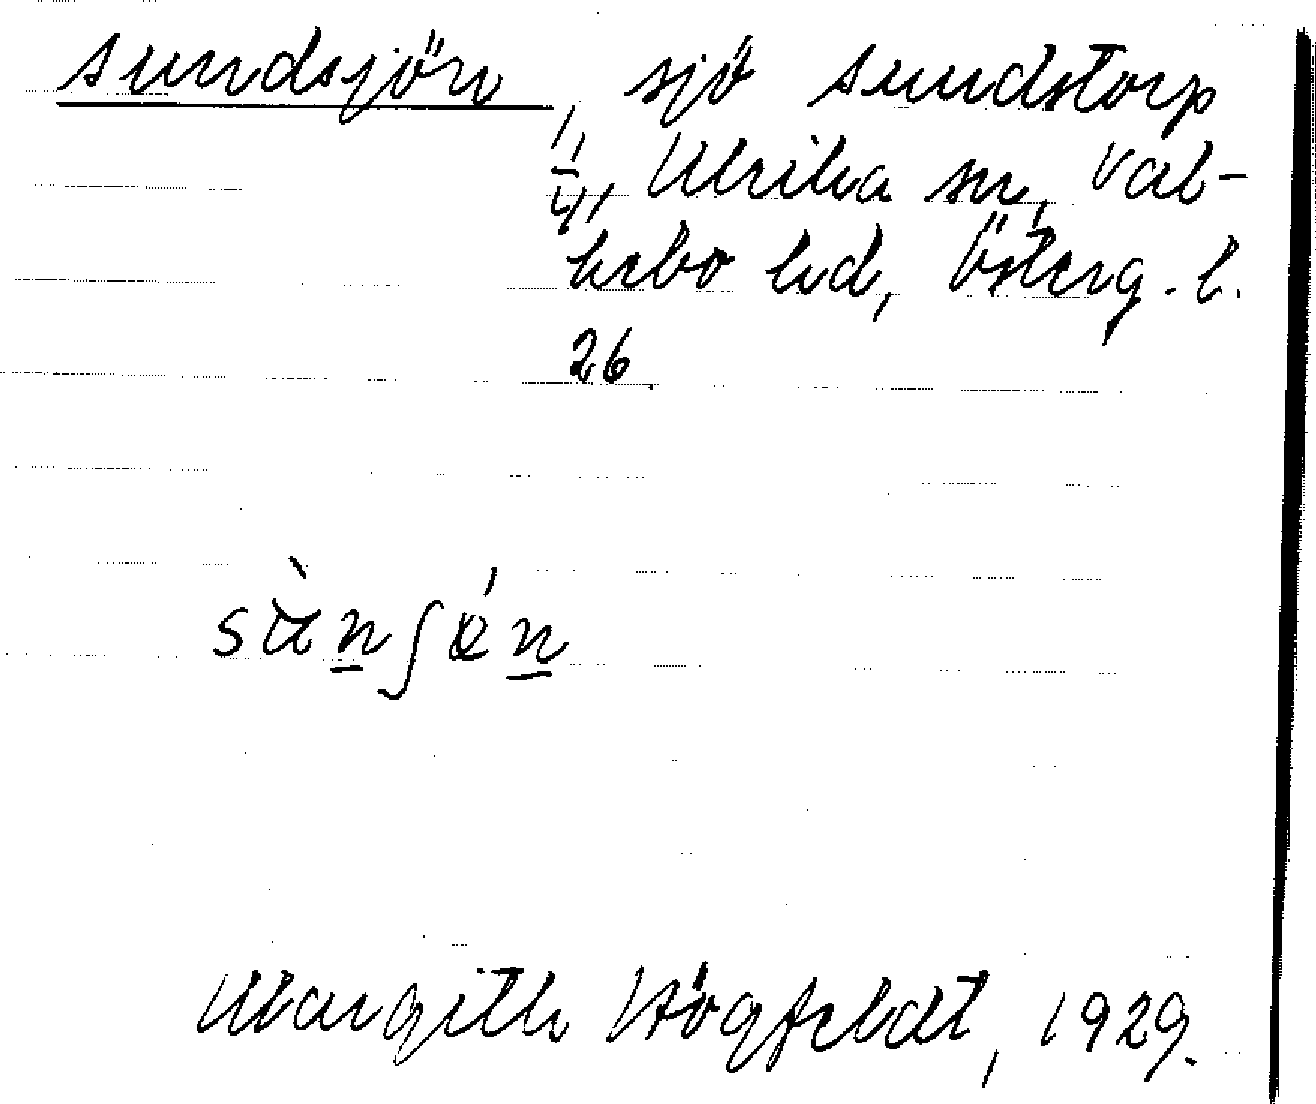 Sundsjön, sjö Sundstorp
1/4, Ulrika sn, Val-
kebo hd, Österg. l.
26.
sùnʃǿn
Margith Högfeldt, 1929.